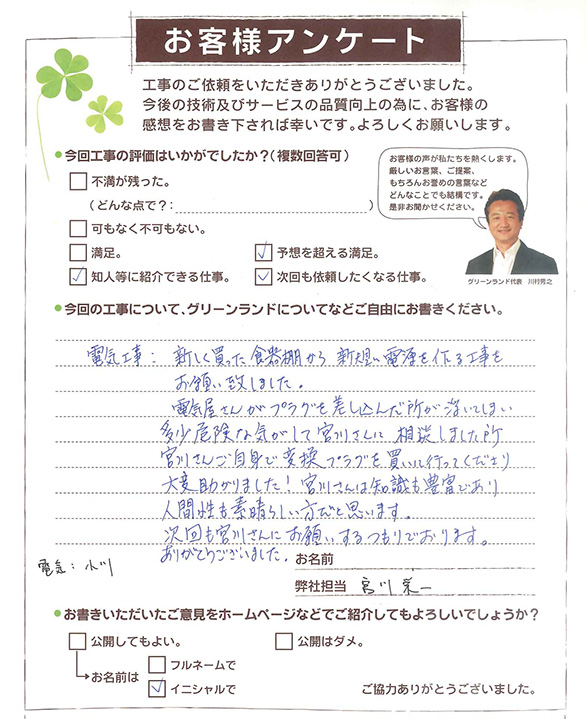 お客様アンケート
工事のご依頼をいただきありがとうございました。
今後の技術及びサービスの品質向上の為に、お客様の
感想をお書き下されば幸いです。よろしくお願いします。
●今回工事の評価はいかがでしたか?(複数回答可)
□不満が残った。
(どんな点で?: )
□可もなく不可もない。
□満足。 ☑予想を超える満足。
☑知人等に紹介できる仕事。 ☑次回も依頼したくなる仕事。
お客様の声が私たちを熱くします。
厳しいお言葉、ご提案、
もちろんお誉めの言葉など
どんなことでも結構です。
是非お聞かせください。
グリーンランド代表 川村芳之
●今回の工事について、グリーンランドについてなどご自由にお書きください。
電気工事: 新しく買った食器棚から新規い電源を作る工事を
お願い致しました。
電気屋さんがプラグを差し込んだ所が浮いてしまい
多少危険な気がして宮川さんに相談しました所
宮川さんご自身で変換プラグを買いに行ってくださり
大変助かりました!宮川さんは知識も豊富であり
人間性も素晴らしい方だと思います。
次回も宮川さんにお願いするつもりでおります。
ありがとうございました。
お名前
電気: 小川
弊社担当 宮川栄一
●お書きいただいたご意見をホームページなどでご紹介してもよろしいでしょうか?
□公開してもよい。 □公開はダメ。
お名前は □フルネームで
☑イニシャルで
ご協力ありがとうございました。